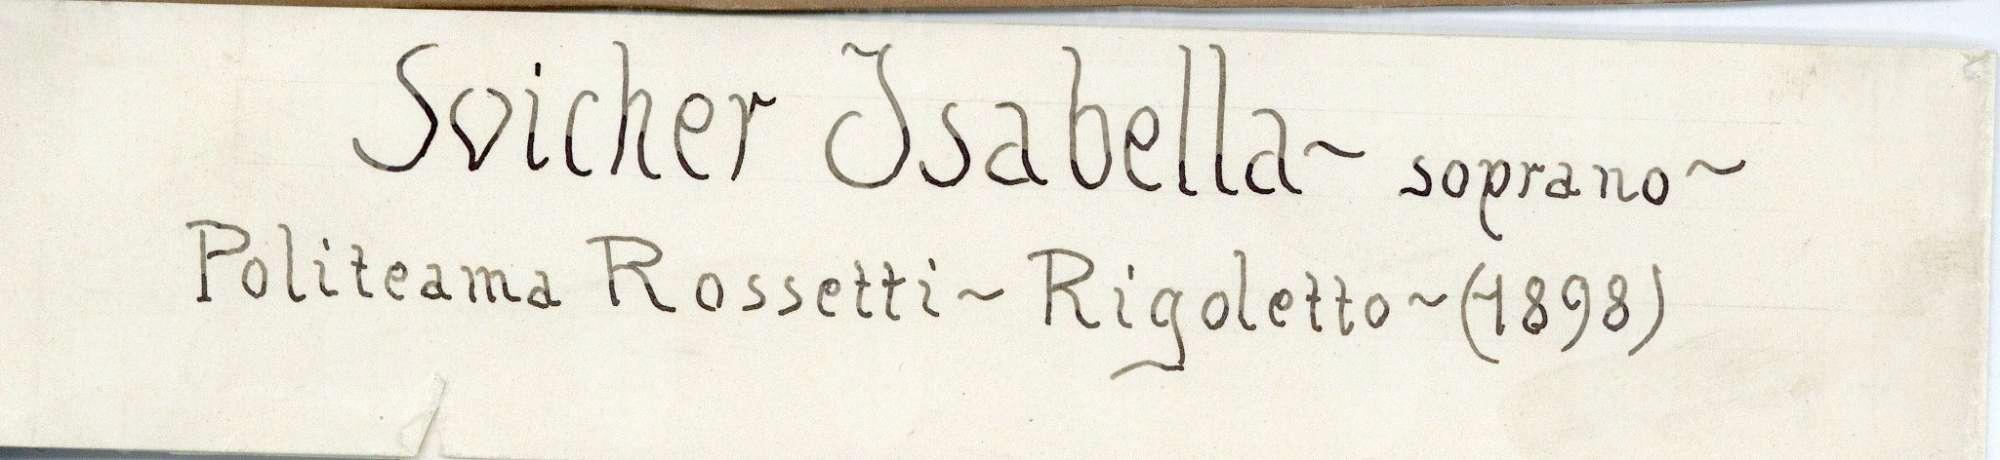 Svicher Isabella ~ soprano ~
Politeama Rossetti ~ Rigoletto ~ (1898)